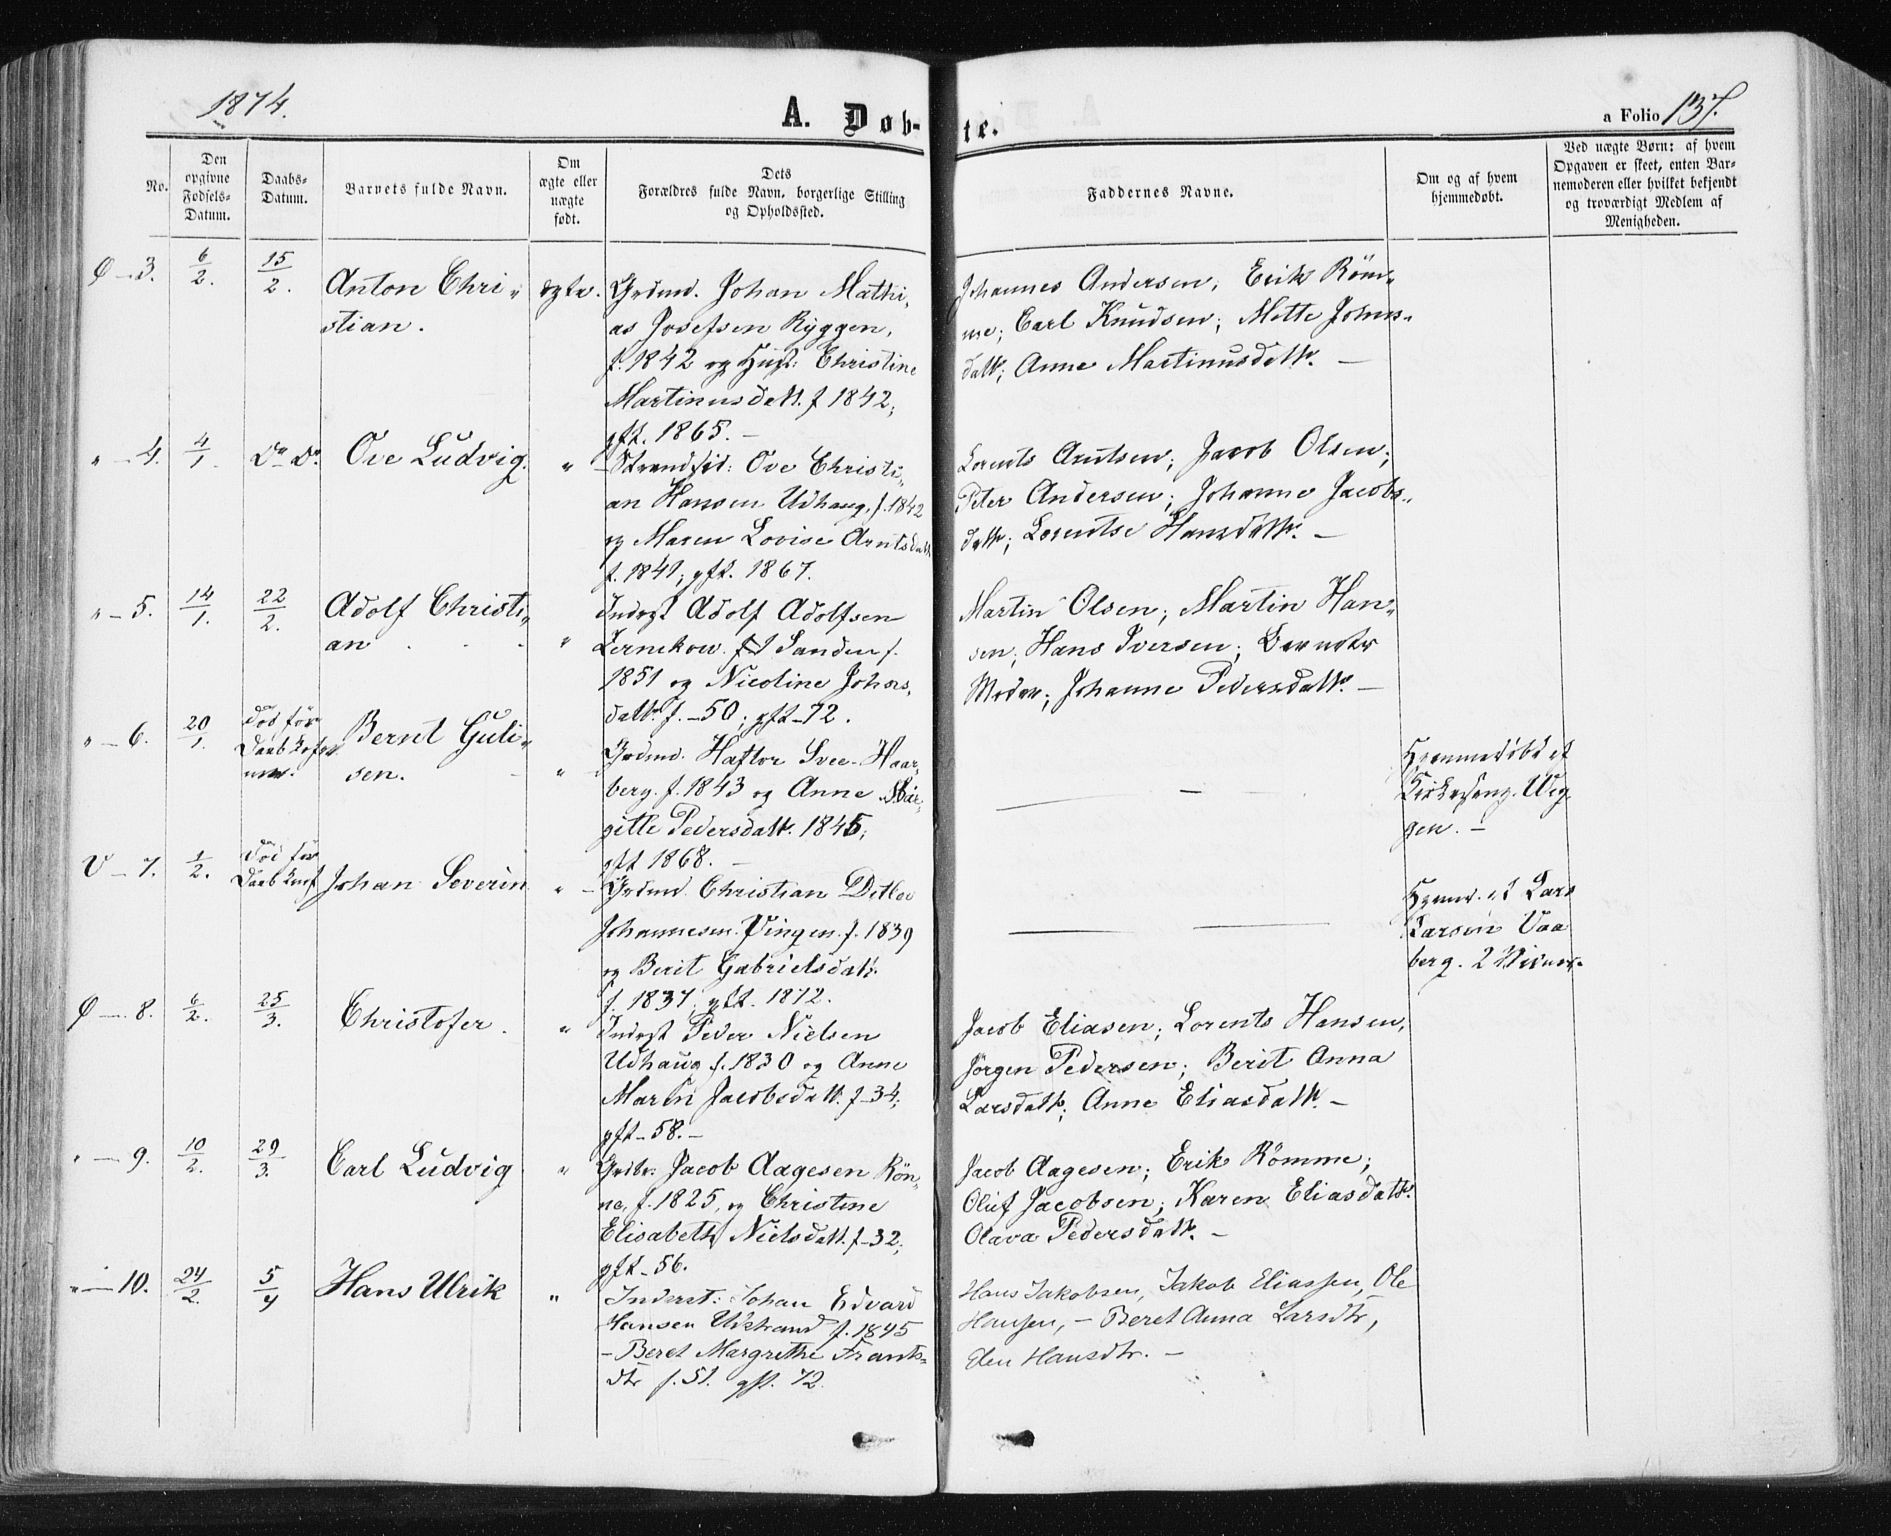 1874.
A. Døb-
te.
a Folio 137.
No.
Den
opgivne
Fødsels-
Datum.
Daabs-
Datum.
Barnets fulde Navn.
Om
ægte eller
uægte
født.
Dets
Forældres fulde Navn, borgerlige Stilling
og Opholdssted.
Faddernes Navne.
Om og af hvem
hjemmedøbt.
Ved uægte Børn: af hvem
Opgaven er skeet, enten Bar-
nemoderen eller hvilket bekjendt
og troværdigt Medlem af
Menigheden.
Ø - 3. 6/2. 15/2. Anton Chri-
stian.
ægte.
Grdmd. Johan Mathi-
as Josefsen Ryggen,
f. 1842 og Hust: Christine
Martinusdatt. f 1842;
gft. 1865. -
Johannes Andersen; Erik Röm-
me; Carl Knudsen; Mette Johns-
datt; Anne Martinusdatt. -
" - 4. 4/1. Do Do. Ove Ludvig.
"
Strandsid: Ove Christi-
an Hansen Udhaug, f. 1842
og Maren Lovise Arntsdatt
f. 1841; gft. 1867.
Lorents Arntsen; Jacob Olsen;
Peter Andersen; Johanne Jacobs-
datt; Lorentse Hansdatt. -
" - 5. 14/1. 22/2. Adolf Christi-
an
"
Inderst Adolf Adolfsen
Lernekow Sanden f.
1851 og Nicoline Johns-
datt. f. - 50; gft - 72.
Martin Olsen; Martin Han-
sen; Hans Iversen; Barnets
Moder; Johanne Pedersdatt. -
" - 6. 20/1. Død før
Daabs
Bernt Guli-
sen.
"
Grdmd. Haftor Svee-Haar-
berg. f. 1843 og Anne Mar-
gitte Pedersdatt. 1845;
gft 1868. -
Hjemmedöbt af
Kirkesang. Wig
gen. -
V - 7. 1/2. Død før
Daab
Johan Severin
"
Grdmd. Christian Detlev
Johannesen Vingen. f. 1839
og Berit Gabrielsdatt.
f. 1837, gft. 1872.
Hjemd. af Lars
Larsen Vaa
berg. 2 Vidner.
Ø - 8. 6/2. 25/3. Christofer.
"
Inderst Peder Nielsen
Udhaug f. 1830 og Anne
Marén Jacobsdatt. f - 34;
gft - 58. -
Jacob Eliasen; Lorents Hansen,
Jörgen Pedersen; Berit Anna
Larsdatt; Anne Eliasdatt. -
" - 9. 10/2. 29/3. Carl Ludvig
"
Grdbr: Jacob Aagesen Rön-
ne, f. 1825, og Christine
Elisabeth Nielsdatt. f - 32;
gft - 56.
Jacob Aagesen; Erik Römme;
Oluf Jacobsen; Karen Eliasdatt.
Olava Pedersdatt. -
" - 10. 24/2. 5/4 Hans Ulrik
"
Inderst: Johan Edvard
Hansen Udstrand f. 1845
- Beret Margrethe Frants-
dtr f. 51. gft. 72.
Hans Jakobsen, Jakob Eliassen, Ole
Hansen, - Beret Anna Larsdtr,
Elen Hansdtr. -